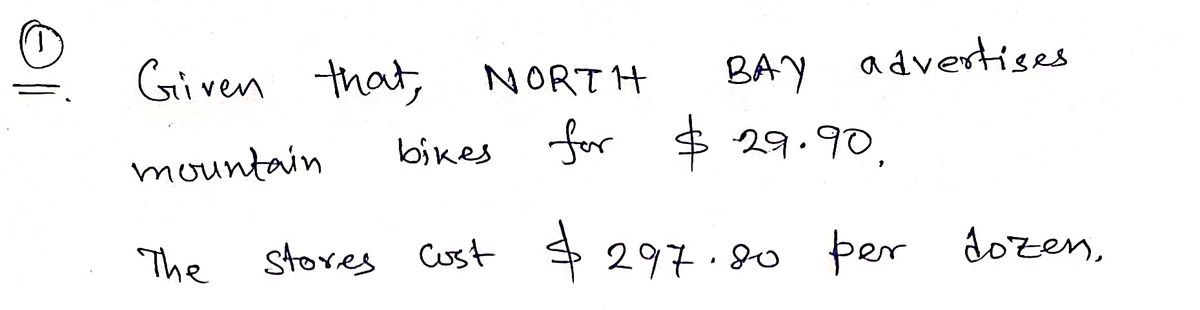 ①
Given that, NORTH BAY advertises
mountain bikes for $ 29.90.
The stores cost $ 297.80 per dozen.